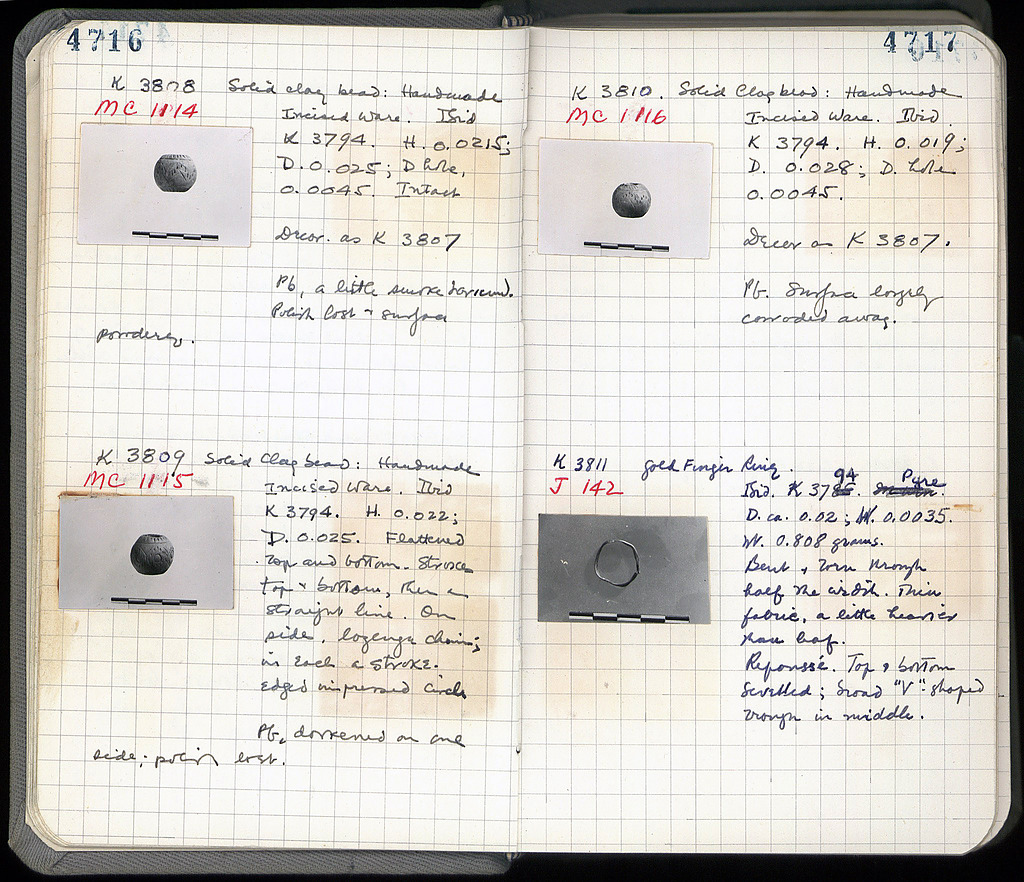 4716
K 3808 Solid clay bead: Handmade
MC 1114
Incised Ware. Ibid
K 3794. H. 0.0215;
D. 0.025; D hole,
0.0045. Intact
Decor. as K 3807
Pb, a little smoke
Polish lost + surface
powdery.
K 3809 Solid Clay bead: Handmade
MC 1115
Incised Ware. Ibid
K 3794. H. 0.022;
D. 0.025. Flattened
top and bottom. Strokes
top + bottom, then a
straight line. On
side, lozenge chain;
in each a stroke.
Edges impressed circle
Pb, darkened on one
side; polish lost.
4717
K 3810. Solid Clay bead: Handmade
MC 1116
Incised Ware. Ibid.
K 3794. H. 0.019;
D. 0.028; D. hole
0.0045.
Decor as K 3807.
Pb. Surface largely
corroded away.
K 3811 Gold Finger Ring.
J 142
94 Pure
Ibid. K 37
D. ca. 0.02; W. 0.0035.
Wt. 0.808 grams.
Bent + torn through
half the width. Thin
fabric, a little heavier
than leaf.
Repoussé. Top + bottom
bevelled; broad "V"-shaped
trough in middle.